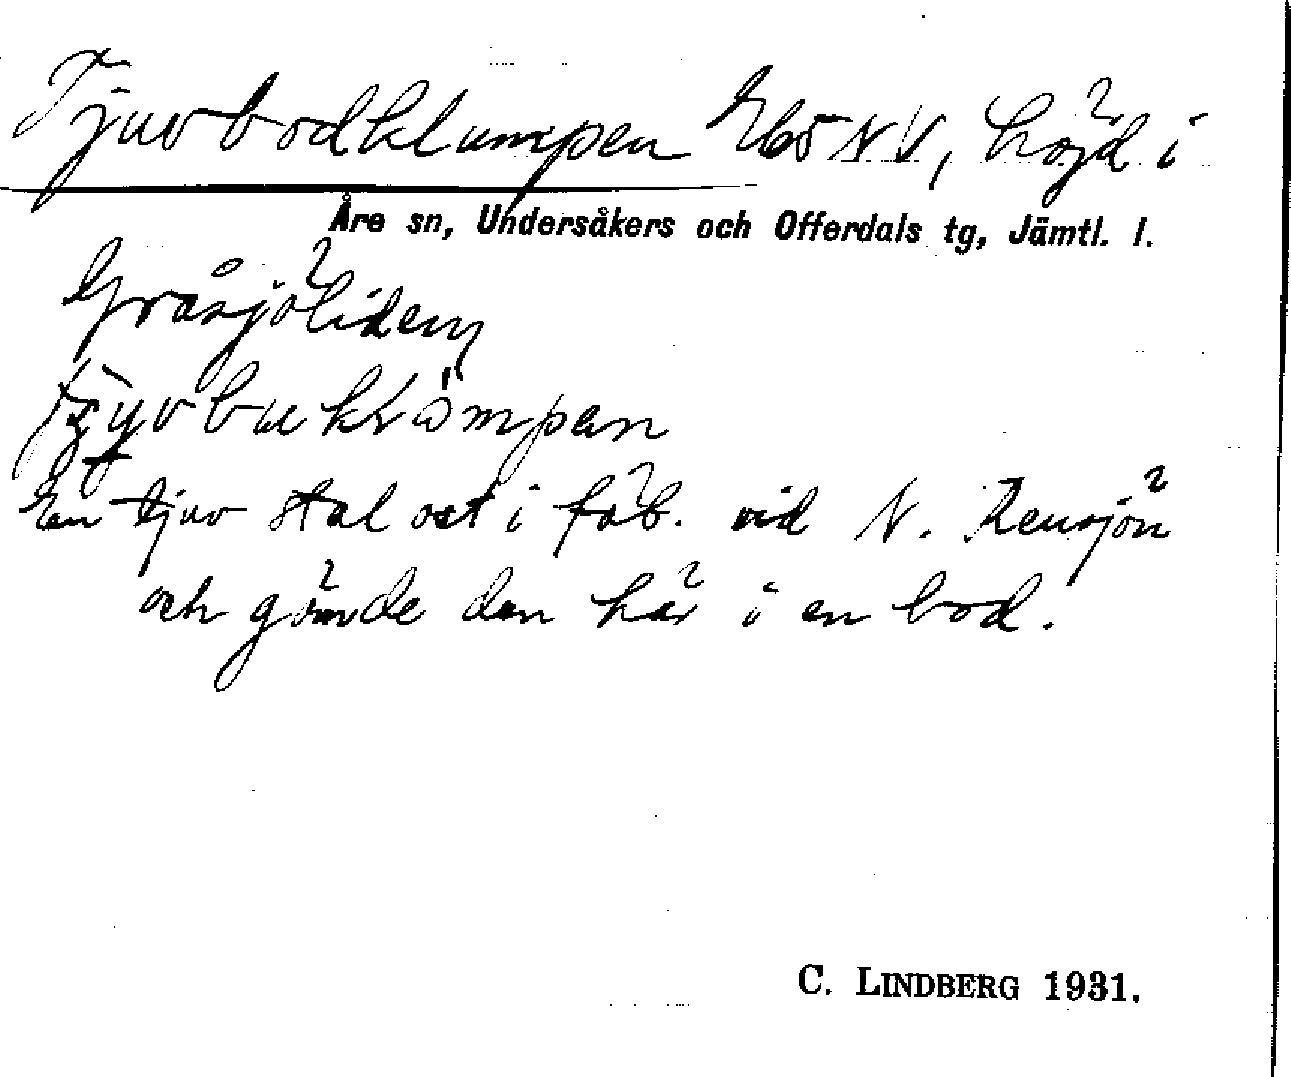 Tjuvbodklumpen Eb5NV, höjd i
Åre sn, Undersåkers och Offerdals tg, Jämtl. l.
Gråsjöliden
En tjuv stal ost i fäb. vid N. Rensjön
och gömde den här i en bod.
C. LINDBERG 1931.